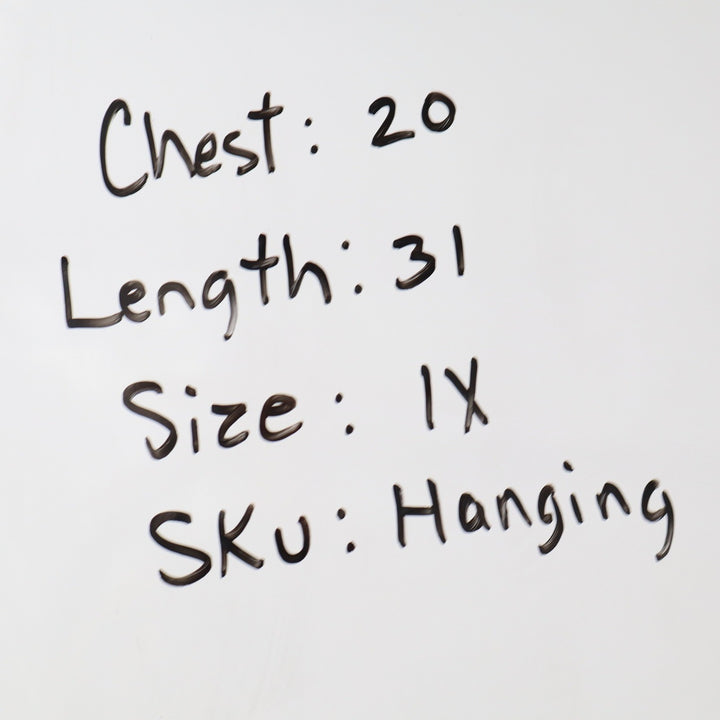 Chest: 20
Length: 31
Size: 1X
SKU: Hanging